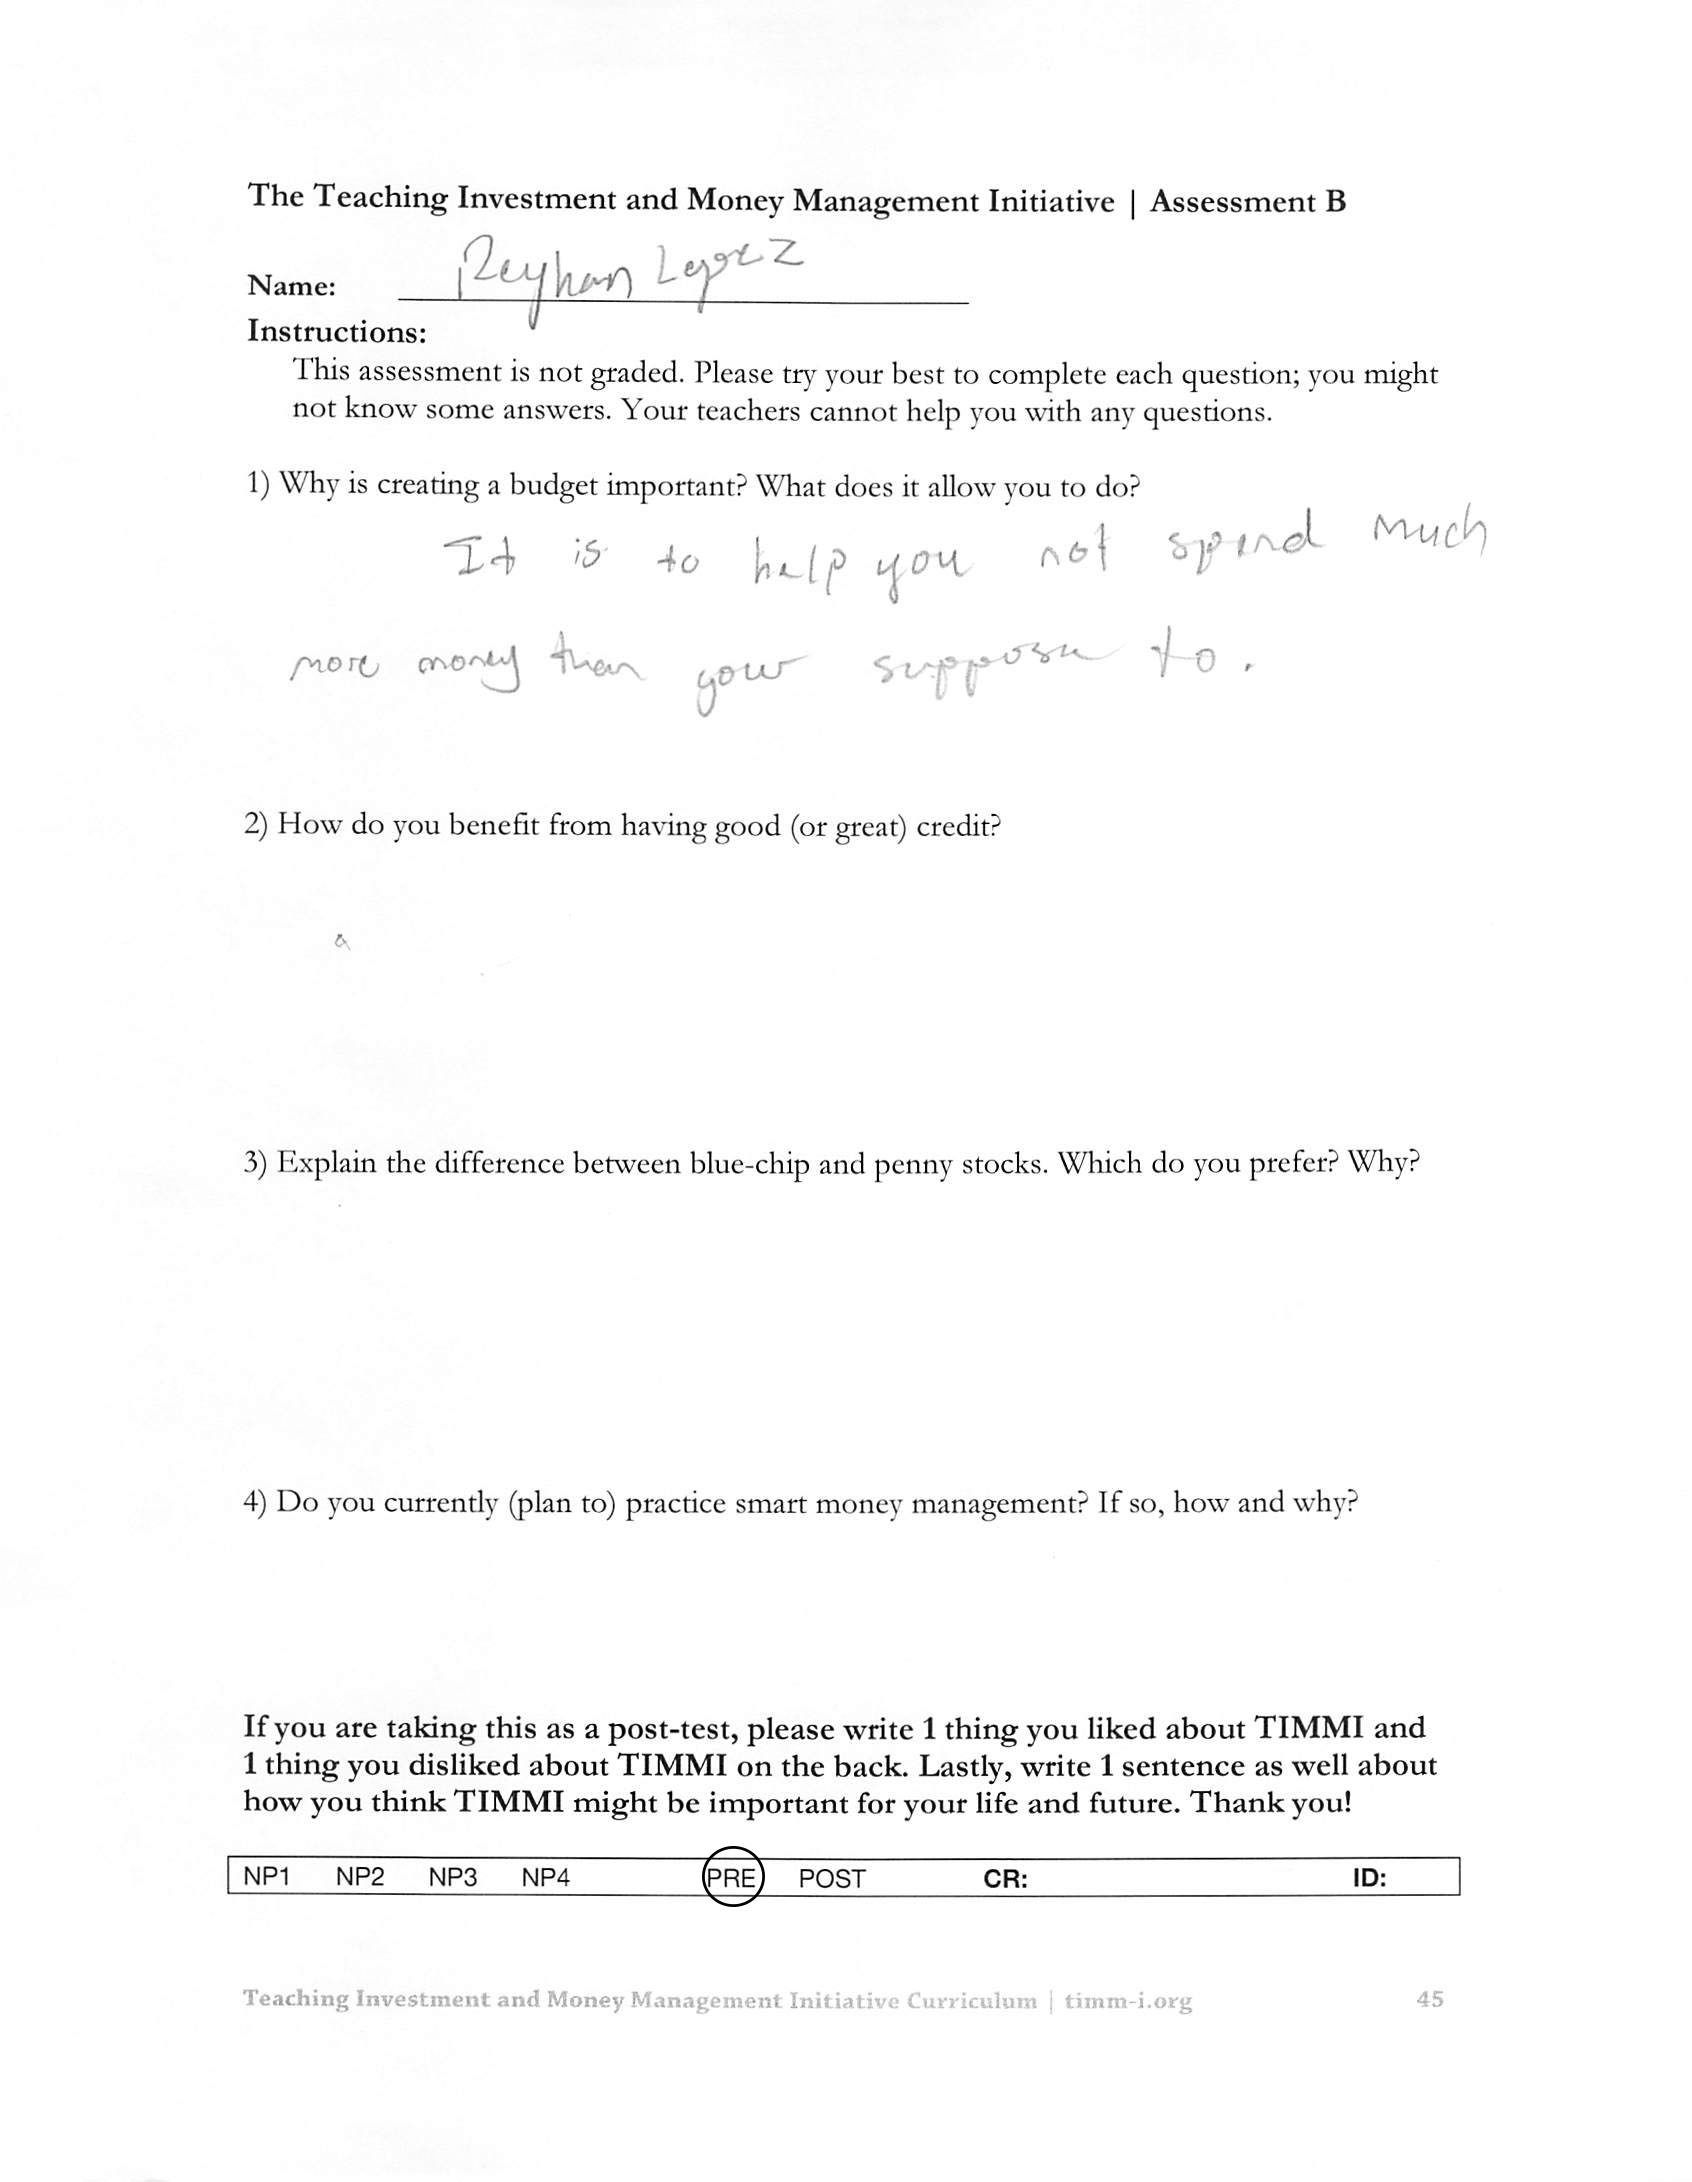 The Teaching Investment and Money Management Initiative | Assessment B
Name: Reyhan Lopez
Instructions:
This assessment is not graded. Please try your best to complete each question; you might
not know some answers. Your teachers cannot help you with any questions.
1) Why is creating a budget important? What does it allow you to do?
It is to help you not spend much
more money than your suppose to.
2) How do you benefit from having good (or great) credit?
a
3) Explain the difference between blue-chip and penny stocks. Which do you prefer? Why?
4) Do you currently (plan to) practice smart money management? If so, how and why?
If you are taking this as a post-test, please write 1 thing you liked about TIMMI and
1 thing you disliked about TIMMI on the back. Lastly, write 1 sentence as well about
how you think TIMMI might be important for your life and future. Thank you!
NP1 NP2 NP3 NP4 PRE POST CR: ID:
Teaching Investment and Money Management Initiative Curriculum | timm-i.org 45